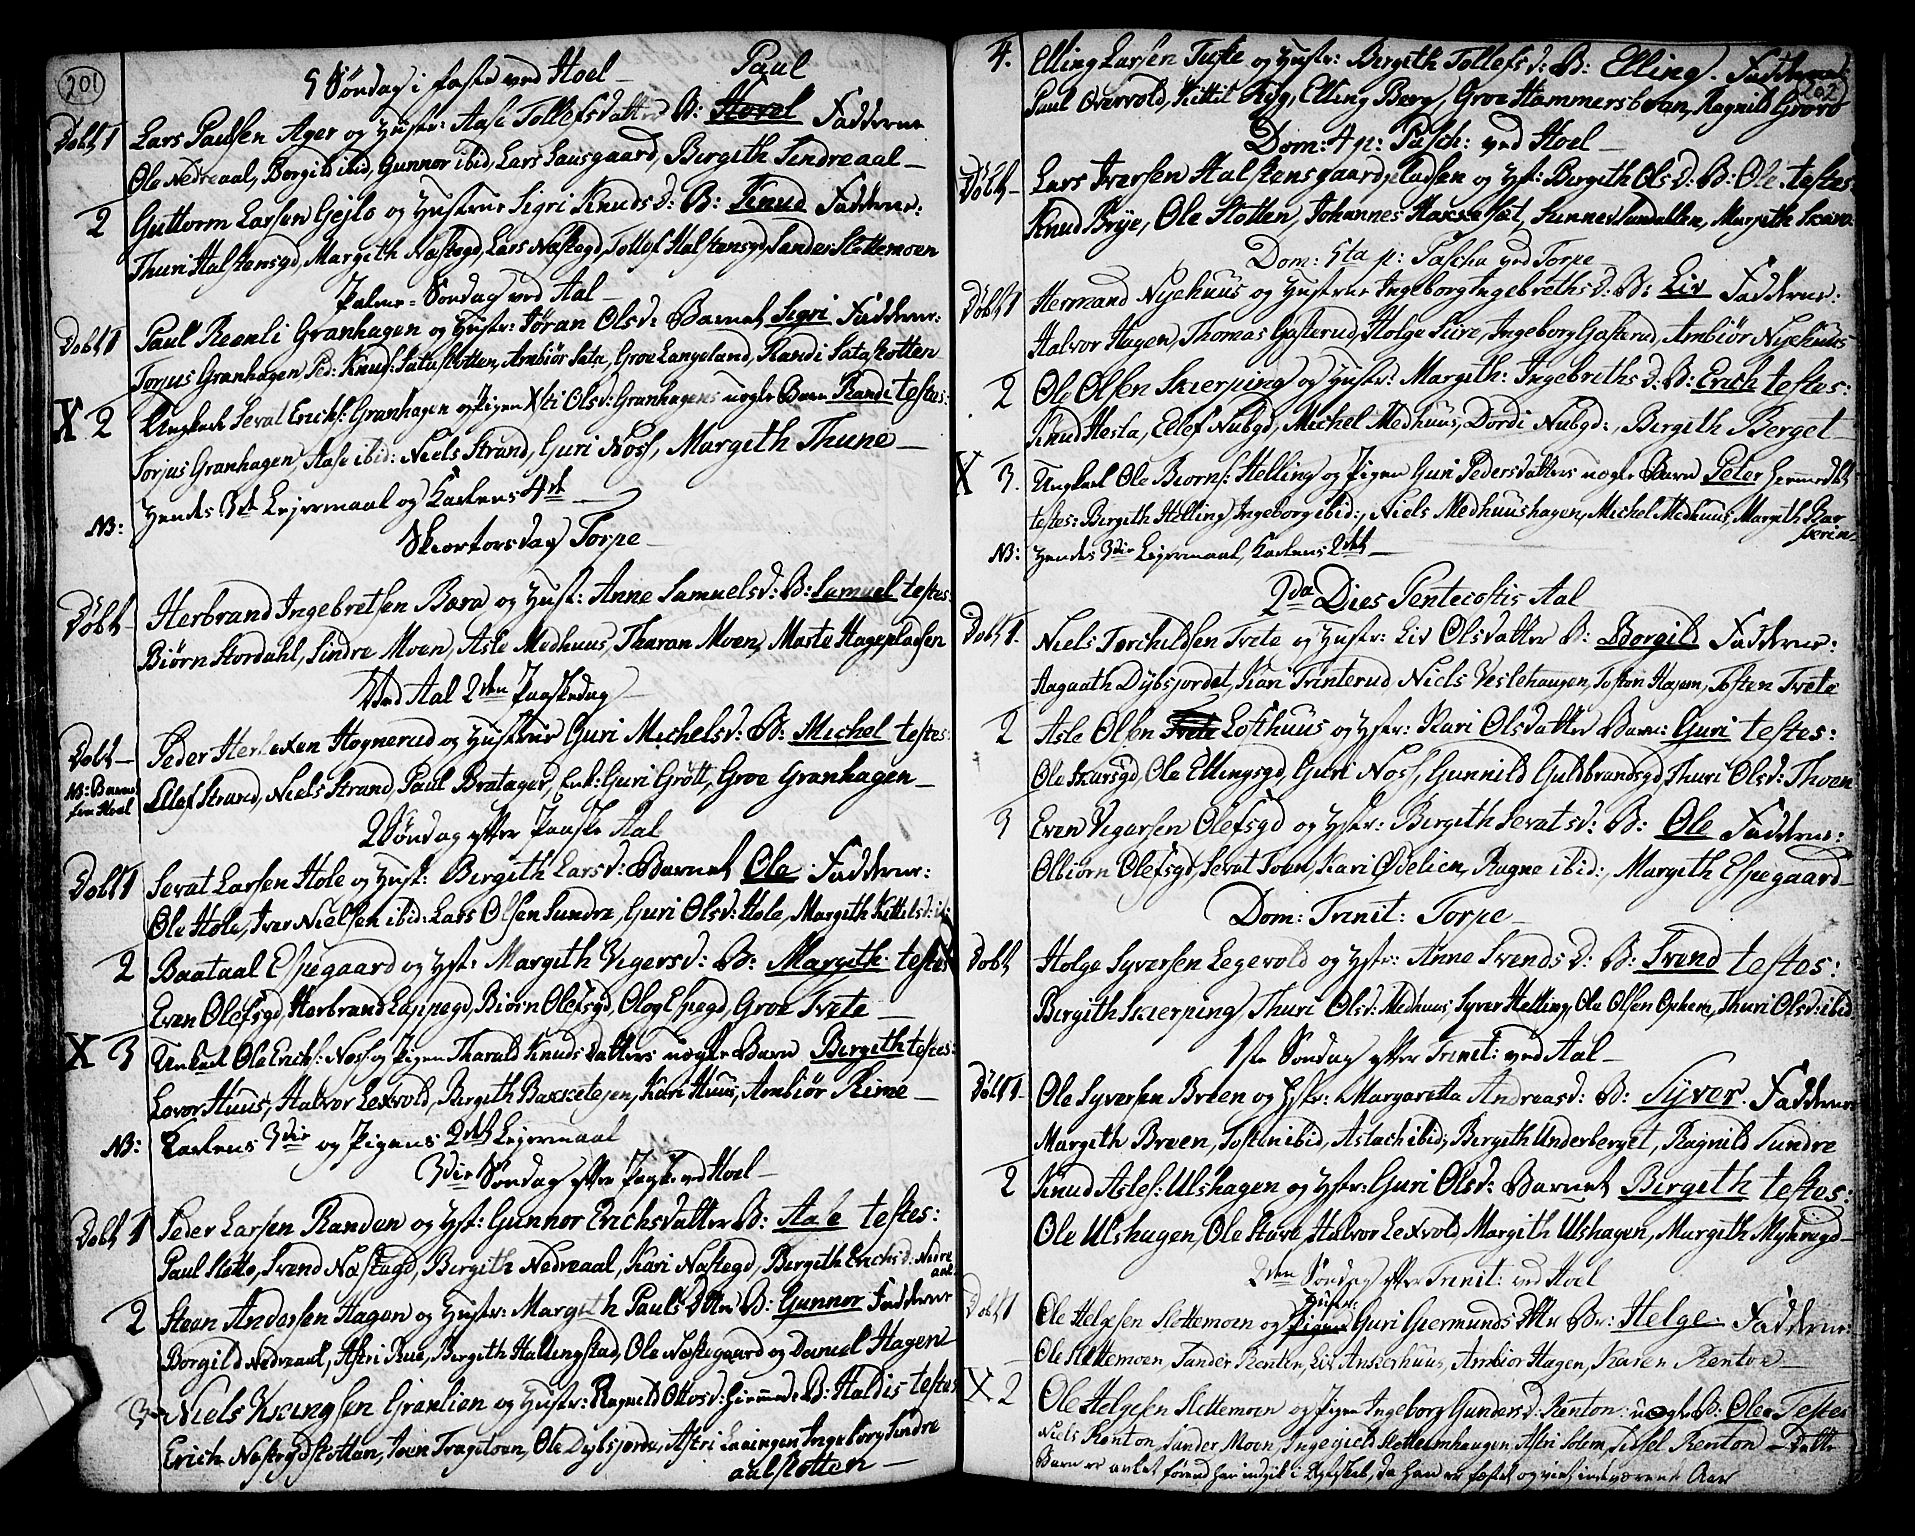 201
5 Søndag i faste ved Hoel
Døbt 1 Lars Paulsen Ager og Hustr: Aase Tollefsdatter B: Paul Fadderne
Ole Nedreaal, Borgild ibid, Gunnor ibid, Lars Sausgaard, Birgith Sindreaal
2 Guttorm Larsen Gejlo og Hustrue Sigri Knudsd: B: Knud Fadderne:
Thuri Halstensgd, Margith Næstegd, Lars Næstegd, Tollef Halstensgd, Sander Slettemoen
Palme-Søndag ved Aal
Døbt 1 Paul Reenli Granhagen og Hustr: Jøran Olsd: Barnet Sigri Fadderne:
Torjus Granhagen Ped: Knud: Sataslotten, Ambiør Sata, Groe Langeland, Randi Sataslotten
X 2 Ungkarl Sevat Erichs: Granhagen og Pigen Kti Olsd: Granhagens uægte Barn Randi testes:
Torjus Granhagen, Aase ibid: Niels Strand, Guri Noss, Margith Thune
NB: Hendes 3de Lejermaal og Karlens 4de
Skiertorsdag Torpe
Døbt Herbrand Ingebretsen Bæra og Hust: Anne Samuelsd: B: Samuel testes:
Biørn Stordahl, Sindre Moen, Asle Medhuus, Tharan Moen, Marte Hagepladsen
Ved Aal 2den Paaskedag
Døbt Peder Herlexen Hognerud og Hustrue Guri Michelsd: B: Michel testes:
NB: Barnet fra Hoel Ellef Strand, Niels Strand, Paul Bratager, Enk: Guri Grøtt, Groe Granhagen
2 Søndag efter Paaske Aal
Døbt 1 Sevat Larsen Hole og Hust: Birgith Larsd: Barnet Ole Fadderne:
Ole Hole, Iver Nielsen ibid: Lars Olsen Sundre, Guri Olsd: Hole, Margith Kittilsd: ib:
2 Baataal Espegaard og Hst: Margith Vigersd: B: Margith testes
Even Olefsgd, Herbrand Lappegd, Biørn Olefsgd, Ole Espegd, Groe Tvete
X 3 Unkarl Ole Erichs: Noss og Pigen Tharald Knudsdatters uægte Barn Birgith testes:
Lavor Huus, Halvor Lexvold, Birgith Bakketejen, Kari Huus, Ambiør Rime
NB: Karlens 3die og Pigens 2det Lejermaal
3die Søndag efter Paaske ved Hoel
Døbt 1 Peder Larsen Randen og Hst: Gunnor Erichsdatter B: Aase testes:
Paul Slotte, Svend Næstegd, Birgith Nedreaal, Kari Næstegd, Birgith Erichsd: Nedre
aal
2 Steen Andersen Hagen og Hustr: Margith Paulsdttr B: Gunnor Fadderne
Borgild Nedreaal, Astri Rue, Birgith Hallingstad, Ole Næstegaard og Daniel Hagen
3 Niels Knudsen Granlien og Hustr: Ragnild Ottosd: hiemmed: B: Haldis testes
Erich Næstegdslotten, Joen Trageton, Ole Dybsjorde, Astri Leningen Ingeborg Sindre
aalslotten
202
4. Elling Larsen Tufte og Hustr: Birgith Tollefsd: B: Elling. Fadderne:
Paul Overvold, Kittil Ryg, Elling Berg, Groe Hammersbøen, Ragnild Grøro
Dom: 4 p: Pasch: ved Hoel
Døbt Lars Iversen Halstensgaardpladsen og Hst: Birgith Olsd: B: Ole testes:
Knud Brye, Ole Slotten, Johannes Hakkesæt, Sunnev Sundallen, Margith Skare
Dom: 5ta p: Pascha ved Torpe
Døbt 1 Hermand Nyehuus og Hustrue Ingeborg Ingebrethsd: B: Liv Fadderne:
Halvor Hagen, Thomas Gasterud, Holge Sire, Ingeborg Gasterud, Ambiør Nyehuus
2 Ole Olsen Skierping og Hustr: Margith: Ingebrethsd: B: Erich testes:
Knud Hesla, Ellef Nubgd, Michel Medhuus, Dordi Nubgd:, Birgith Berget
X 3. Ungkarl Ole Biorns: Helling og Pigen Guri Pedersdatters uægte Barn Peter hiemmedøbt
testes: Birgith Helling, Ingeborg ibid:, Niels Medhuushagen, Michel Medhuus, Margith Bar
skrin
NB: Hendes 3die Lejermaal, Karlens 2det
2da Dies Pentecostis Aal
Døbt 1. Niels Torchildsen Tvete og Hustr: Liv Olsdatter B: Borgild Fadderne:
Aagaath Dybsjordet, Kari Trinterud Niels Veslehaugen, Tosten Hajem, Tosten Tvete
2 Asle Olsen Lofthuus og Hstr: Kari Olsdatter Barn: Guri testes:
Ole Skarsgd, Ole Ellingsgd, Guri Noss, Gunnild Guldbrandsgd, Thuri Olsd: Thoen
3 Even Vigersen Olefsgd og Hstr: Birgith Sevatsd: B: Ole Fadderne:
Olbiørn Olefsgd, Sevat Toen, Kari Ødelien, Ragne ibid:, Margith Espegaard
Dom: Trinit: Torpe
Døbt Holge Syversen Legevold og Hstr: Anne Svendsd: B: Svend testes:
Birgith Skierping, Thuri Olsd: Medhuus, Syver Helling, Ole Olsen Ophem, Thuri Olsd: ibid
1ste Søndag efter Trinit: ved Aal
Døbt 1. Ole Syversen Breen og Hstr: Margaretta Andreasd: B: Syver. Fadderne:
Margith Breen, Tosten ibid, Aslach ibid, Birgith Underberget, Ragnild Sundre
2 Knud Asles: Ulshagen og Hstr: Guri Olsd: Barnet Birgith testes:
Ole Ulshagen, Ole Stave, Halvor Lexvold Margith Ulshagen, Margith Myhregd
2den Søndag efter Trinit: ved Hoel
Døbt 1 Ole Helgesen Slettemoen og Hustr: Guri Giermundsdttr Br: Helge. Fadderne:
Ole Slettemoen, Sander Renton, Liv Ankerhuus, Ambiør Hagen, Karen Renton
X 2 Ole Helgesen Slettemoen og Pigen Ingeborg Gundersd: Renton: uægte B: Ole Testes
Niels Renton, Sander Moen, Ingegierd Slettemhaugen, Astri Solem, Sidsel Renton Dette
Barn er avlet førend han indgik i Egteskab, da han er fæstet og viet indeværende Aar